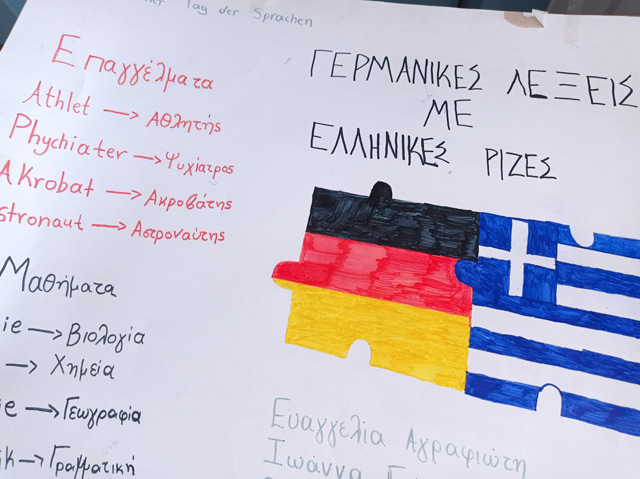 Tag der Sprachen
Επαγγέλματα
Athlet → Αθλητής
Phychiater → Ψυχίατρος
Akrobat → Ακροβάτης
stronaut → Αστροναύτης
Μαθήματα
ie → Βιολογία
→ Χημεία
ie → Γεωγραφία
ik → Γραμματική
ΓΕΡΜΑΝΙΚΕΣ ΛΕΞΕΙΣ
ΜΕ
ΕΛΛΗΝΙΚΕΣ ΡΙΖΕΣ
Ευαγγελία Αγραφιώτη
Ιωάννα